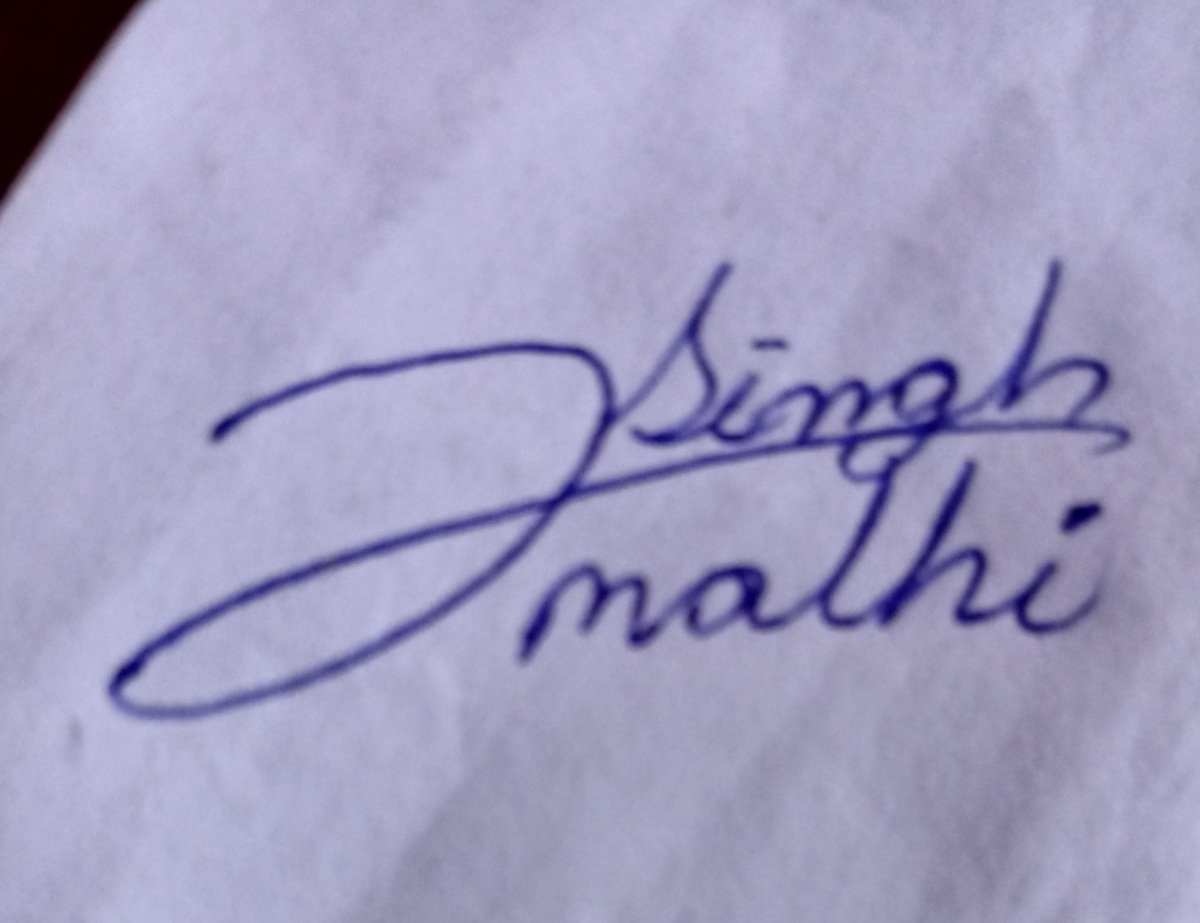 J Singh
malhi